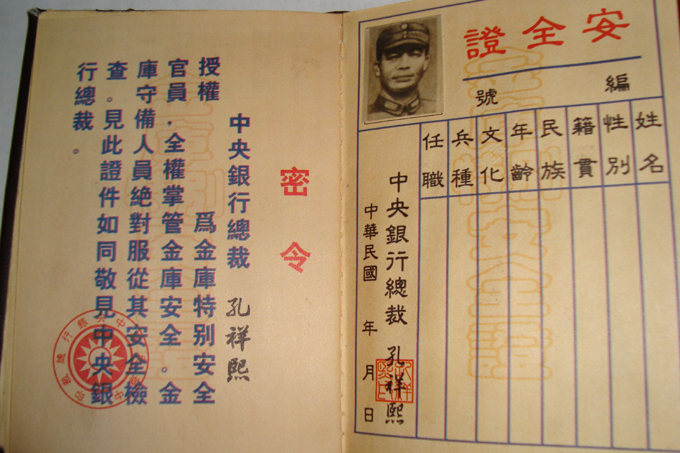 安全證
編號
姓名
性別
籍貫
民族
年齡
文化
兵種
任職
中央銀行總裁 孔祥熙
中華民國 年 月 日
密令
中央銀行總裁 孔祥熙
授權 爲金庫特別安全
官員，全權掌管金庫安全。金
庫守備人員絕對服從其安全檢
查。見此證件如同敬見中央銀
行總裁。